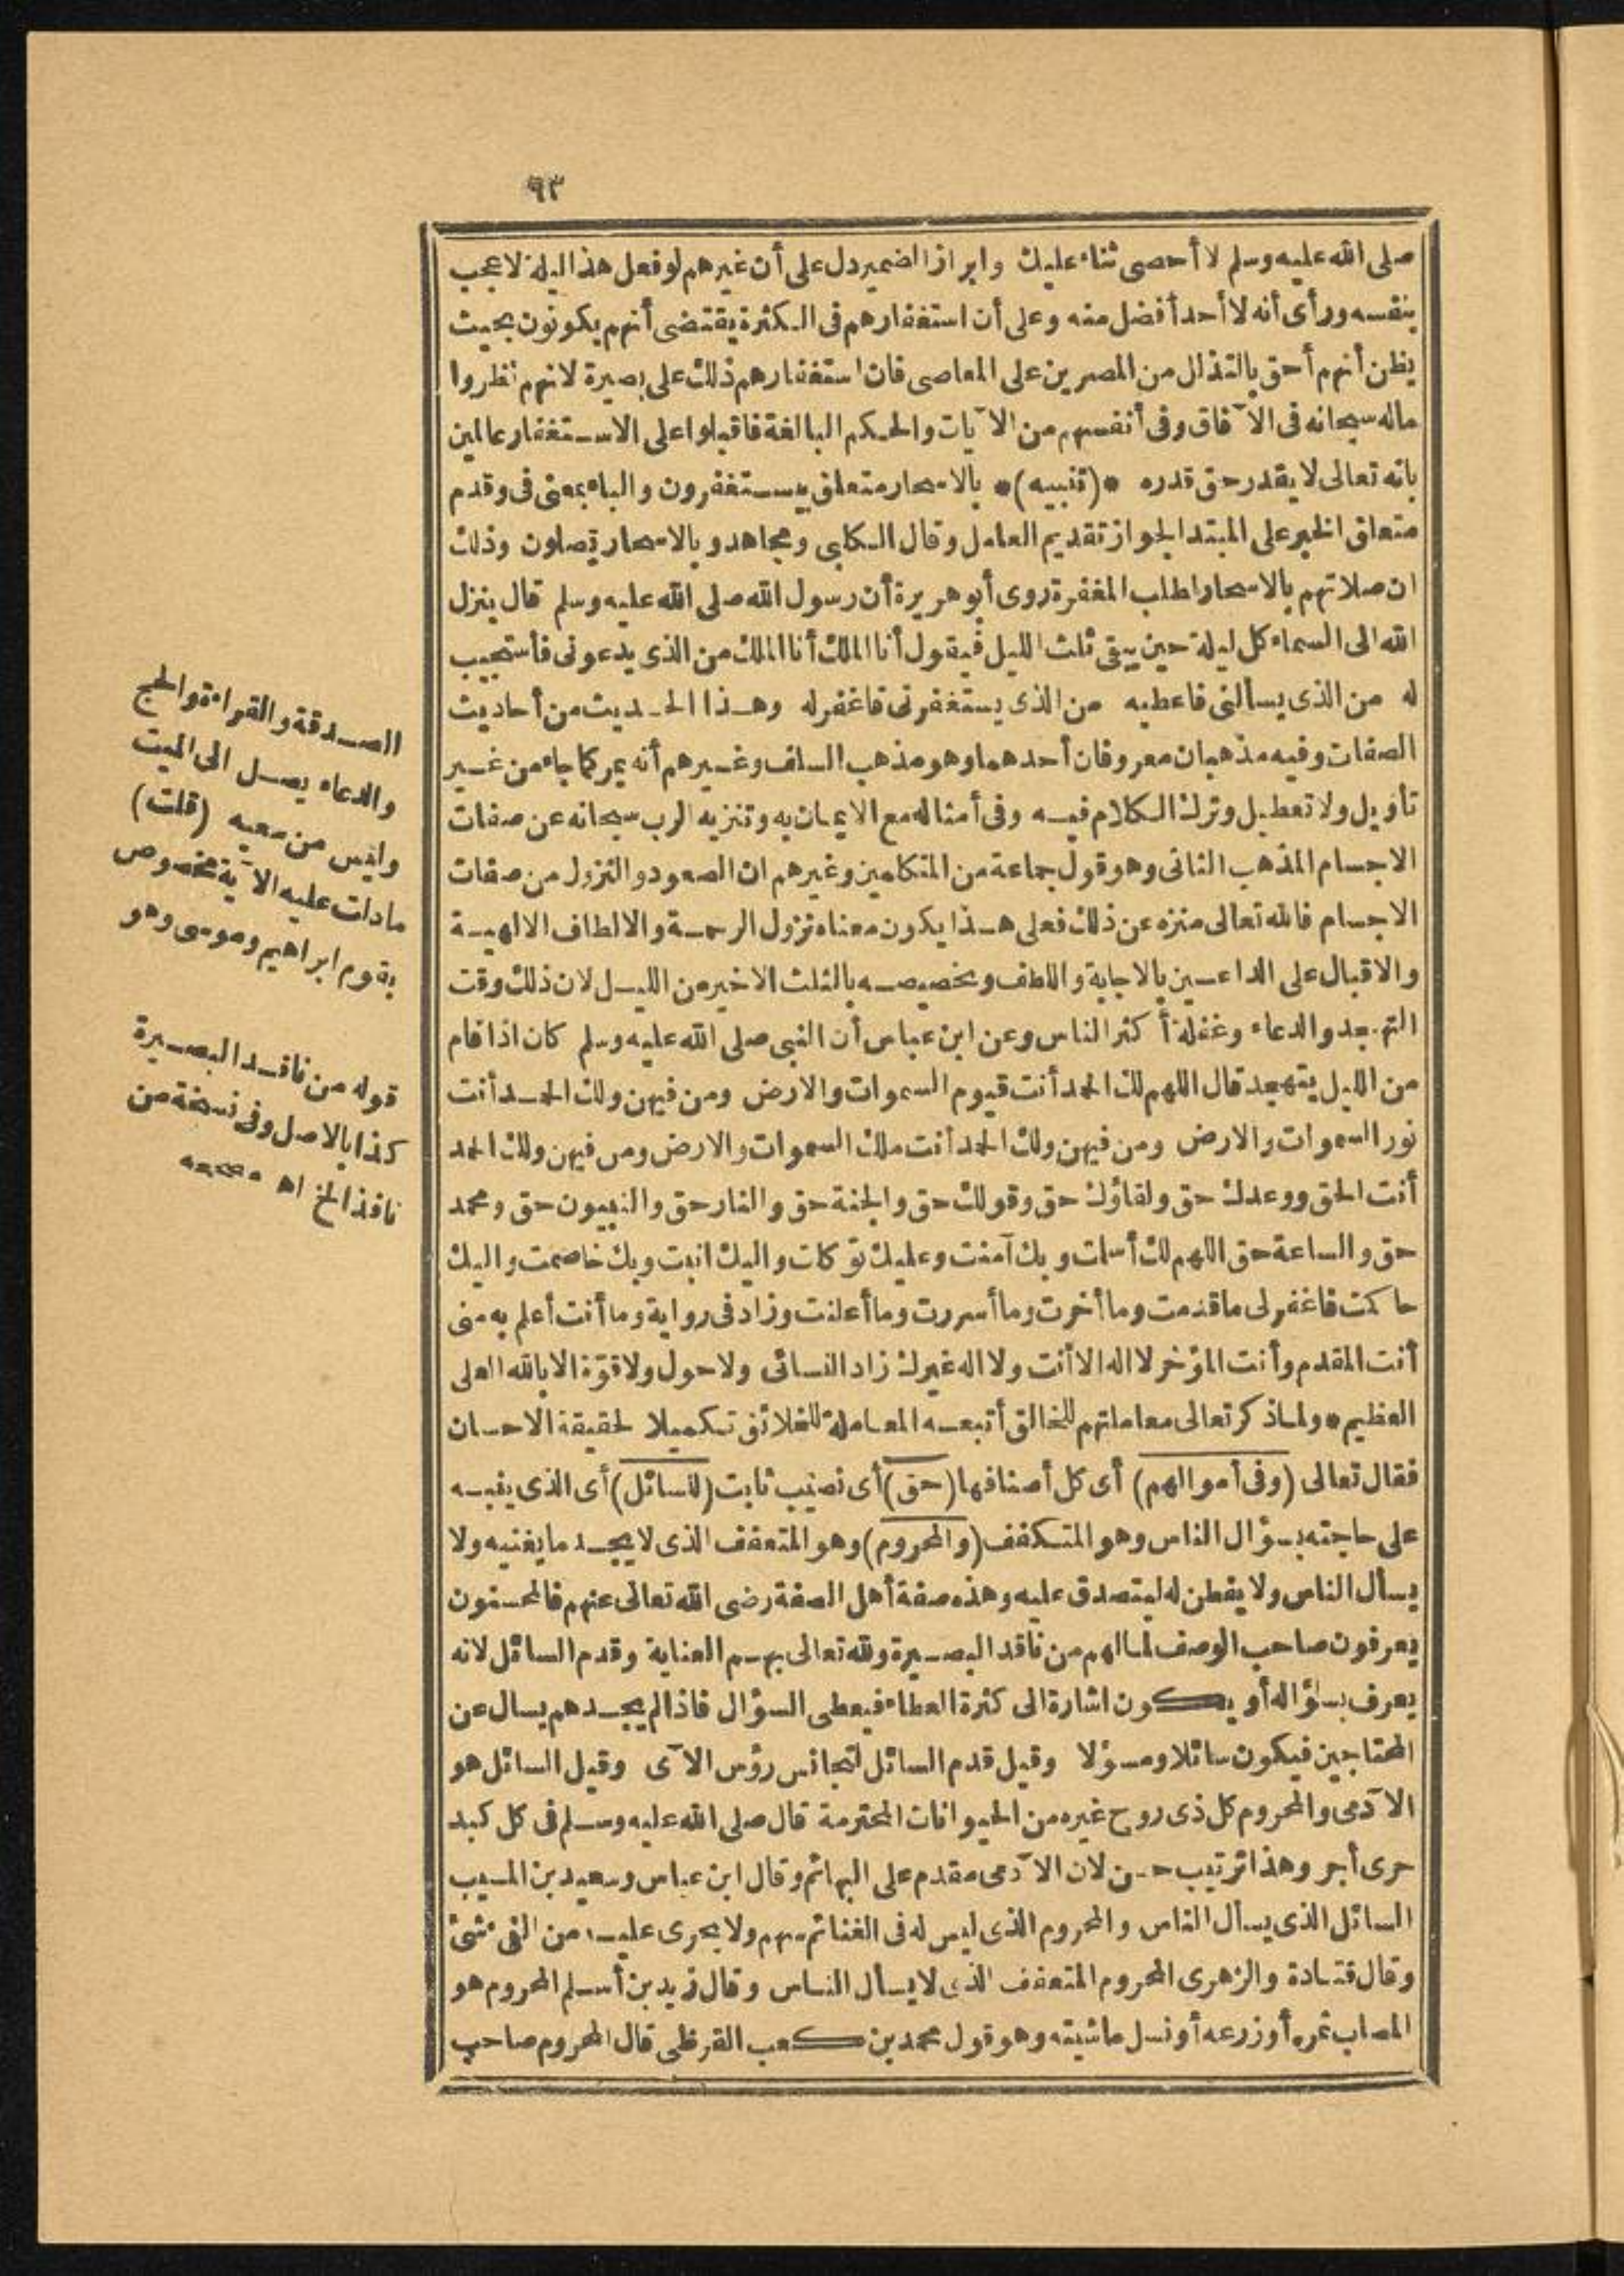 ٩٣
صلى الله عليه وسلم لا أحصى ثناء عليك وابراز الضمير دل على أن غيرهم لو فعل هذا ليلة لاعجب
بنفسه ورأى أنه لا أحد أفضل منه وعلى أن استغفارهم فى الكثرة يقتضى أنهم يكونون بحيث
يظن أنهم أحق بالتذال من المصرين على المعاصى فان استغفارهم ذلك على بصيرة لانهم نظروا
ماله سبحانه فى الآفاق وفى أنفسهم من الآيات والحكم البالغة فاقبلوا على الاستغفار عالمين
بانه تعالى لا يقدر حق قدره *(تنبيه)* بالاسحار متعلق بيستغفرون والباء بمعنى فى وقدم
متعلق الخبر على المبتدا لجواز تقديم العامل وقال الكلبى ومجاهد وبالاسحار يصلون وذلك
ان صلاتهم بالاسحار لطلب المغفرة روى أبو هريرة أن رسول الله صلى الله عليه وسلم قال ينزل
الله الى السماء كل ليلة حين يبقى ثلث الليل فيقول أنا الملك أنا الملك من الذى يدعونى فأستجيب
له من الذى يسألنى فاعطيه من الذى يستغفرنى فاغفر له وهذا الحديث من أحاديث
الصفات وفيه مذهبان معروفان أحدهما وهو مذهب السلف وغيرهم أنه يمر كما جاء من غير
تأويل ولا تعطيل وترك الكلام فيه وفى أمثاله مع الايمان به وتنزيه الرب سبحانه عن صفات
الاجسام المذهب الثانى وهو قول جماعة من المتكلمين وغيرهم ان الصعود والنزول من صفات
الاجسام فالله تعالى منزه عن ذلك فعلى هذا يكون معناه نزول الرحمة والالطاف الالهية
والاقبال على الداعين بالاجابة واللطف وتخصيصه بالثلث الاخير من الليل لان ذلك وقت
التهجد والدعاء وغفلة أكثر الناس وعن ابن عباس أن النبى صلى الله عليه وسلم كان اذا قام
من الليل يتهجد قال اللهم لك الحمد أنت قيوم السموات والارض ومن فيهن ولك الحمد أنت
نور السموات والارض ومن فيهن ولك الحمد أنت ملك السموات والارض ومن فيهن ولك الحمد
أنت الحق ووعدك حق ولقاؤك حق وقولك حق والجنة حق والنار حق والنبيون حق ومحمد
حق والساعة حق اللهم لك أسلمت وبك آمنت وعليك توكلت واليك انبت وبك خاصمت واليك
حاكمت فاغفر لى ما قدمت وما أخرت وما أسررت وما أعلنت وزاد فى رواية وما أنت أعلم به منى
أنت المقدم وأنت المؤخر لا اله الا أنت ولا اله غيرك زاد النسائى ولا حول ولا قوّة الا بالله العلى
العظيم * ولما ذكر تعالى معاملتهم للخالق أتبعه المعاملة للخلائق تكميلا لحقيقة الاحسان
فقال تعالى (وفى أموالهم) أى كل أصنافها (حق) أى نصيب ثابت (للسائل) أى الذى ينبه
على حاجته بسؤال الناس وهو المتكفف (والمحروم) وهو المتعفف الذى لا يجد ما يغنيه ولا
يسأل الناس ولا يفطن له ليتصدق عليه وهذه صفة أهل الصفة رضى الله تعالى عنهم فالمحسنون
يعرفون صاحب الوصف لمالهم من ناقد البصيرة ولله تعالى بهم العناية وقدم السائل لانه
يعرف بسؤاله أو يكون اشارة الى كثرة العطاء فيعطى السؤال فاذا لم يجدهم يسال عن
المحتاجين فيكون سائلا ومسؤلا وقيل قدم السائل لتجانس رؤس الآى وقيل السائل هو
الآدمى والمحروم كل ذى روح غيره من الحيوانات المحترمة قال صلى الله عليه وسلم فى كل كبد
حرى أجر وهذا ترتيب حسن لان الآدمى مقدم على البهائم وقال ابن عباس وسعيد بن المسيب
السائل الذى يسأل الناس والمحروم الذى ليس له فى الغنائم سهم ولا يجرى عليه من الفى شئ
وقال قتادة والزهرى المحروم المتعفف الذى لا يسأل الناس وقال زيد بن أسلم المحروم هو
المصاب ثمره أو زرعه أو نسل ماشيته وهو قول محمد بن كعب القرظى قال المحروم صاحب
الصدقة والقراءة والحج
والدعاء يصل الى الميت
وليس من سعيه (قلت)
مادلت عليه الآية مخصوص
بقوم ابراهيم وموسى وهو
قوله من ناقد البصيرة
كذا بالاصل وفى نسخة من
نافذ الخ اه مصححه